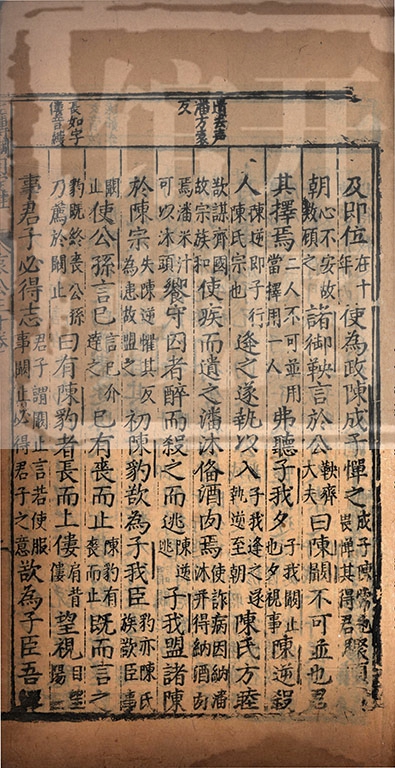 遺去聲
潘方袁
反
長如字
僂音縷
及即位在十年使為政陳成子憚之成子陳常也畏憚其得君驟顧
朝心不安故數顧之諸御鞅言於公鞅齊大夫曰陳闞不可並也君
其擇焉二人不可並用當擇用一人弗聽子我夕子我闞止也夕視事陳逆殺
人陳逆即子行陳氏宗也逢之遂執以入子我逢之遂執逆至朝陳氏方睦
欲謀齊國故宗族和使疾而遺之潘沐備酒肉焉使詐病因納潘沐并得納酒肉
焉潘米汁可以沐頭饗守囚者醉而殺之而逃陳逆逃子我盟諸陳
於陳宗失陳逆懼其反為患故盟之初陳豹欲為子我臣豹亦陳氏族欲臣事
闞止使公孫言已言已介達之已有喪而止陳豹有喪而止既而言之
豹既終喪公孫乃薦於闞止曰有陳豹者長而上僂肩背僂望視目望陽
事君子必得志君子謂闞止言若使服事闞止必得君子之意欲為子臣吾